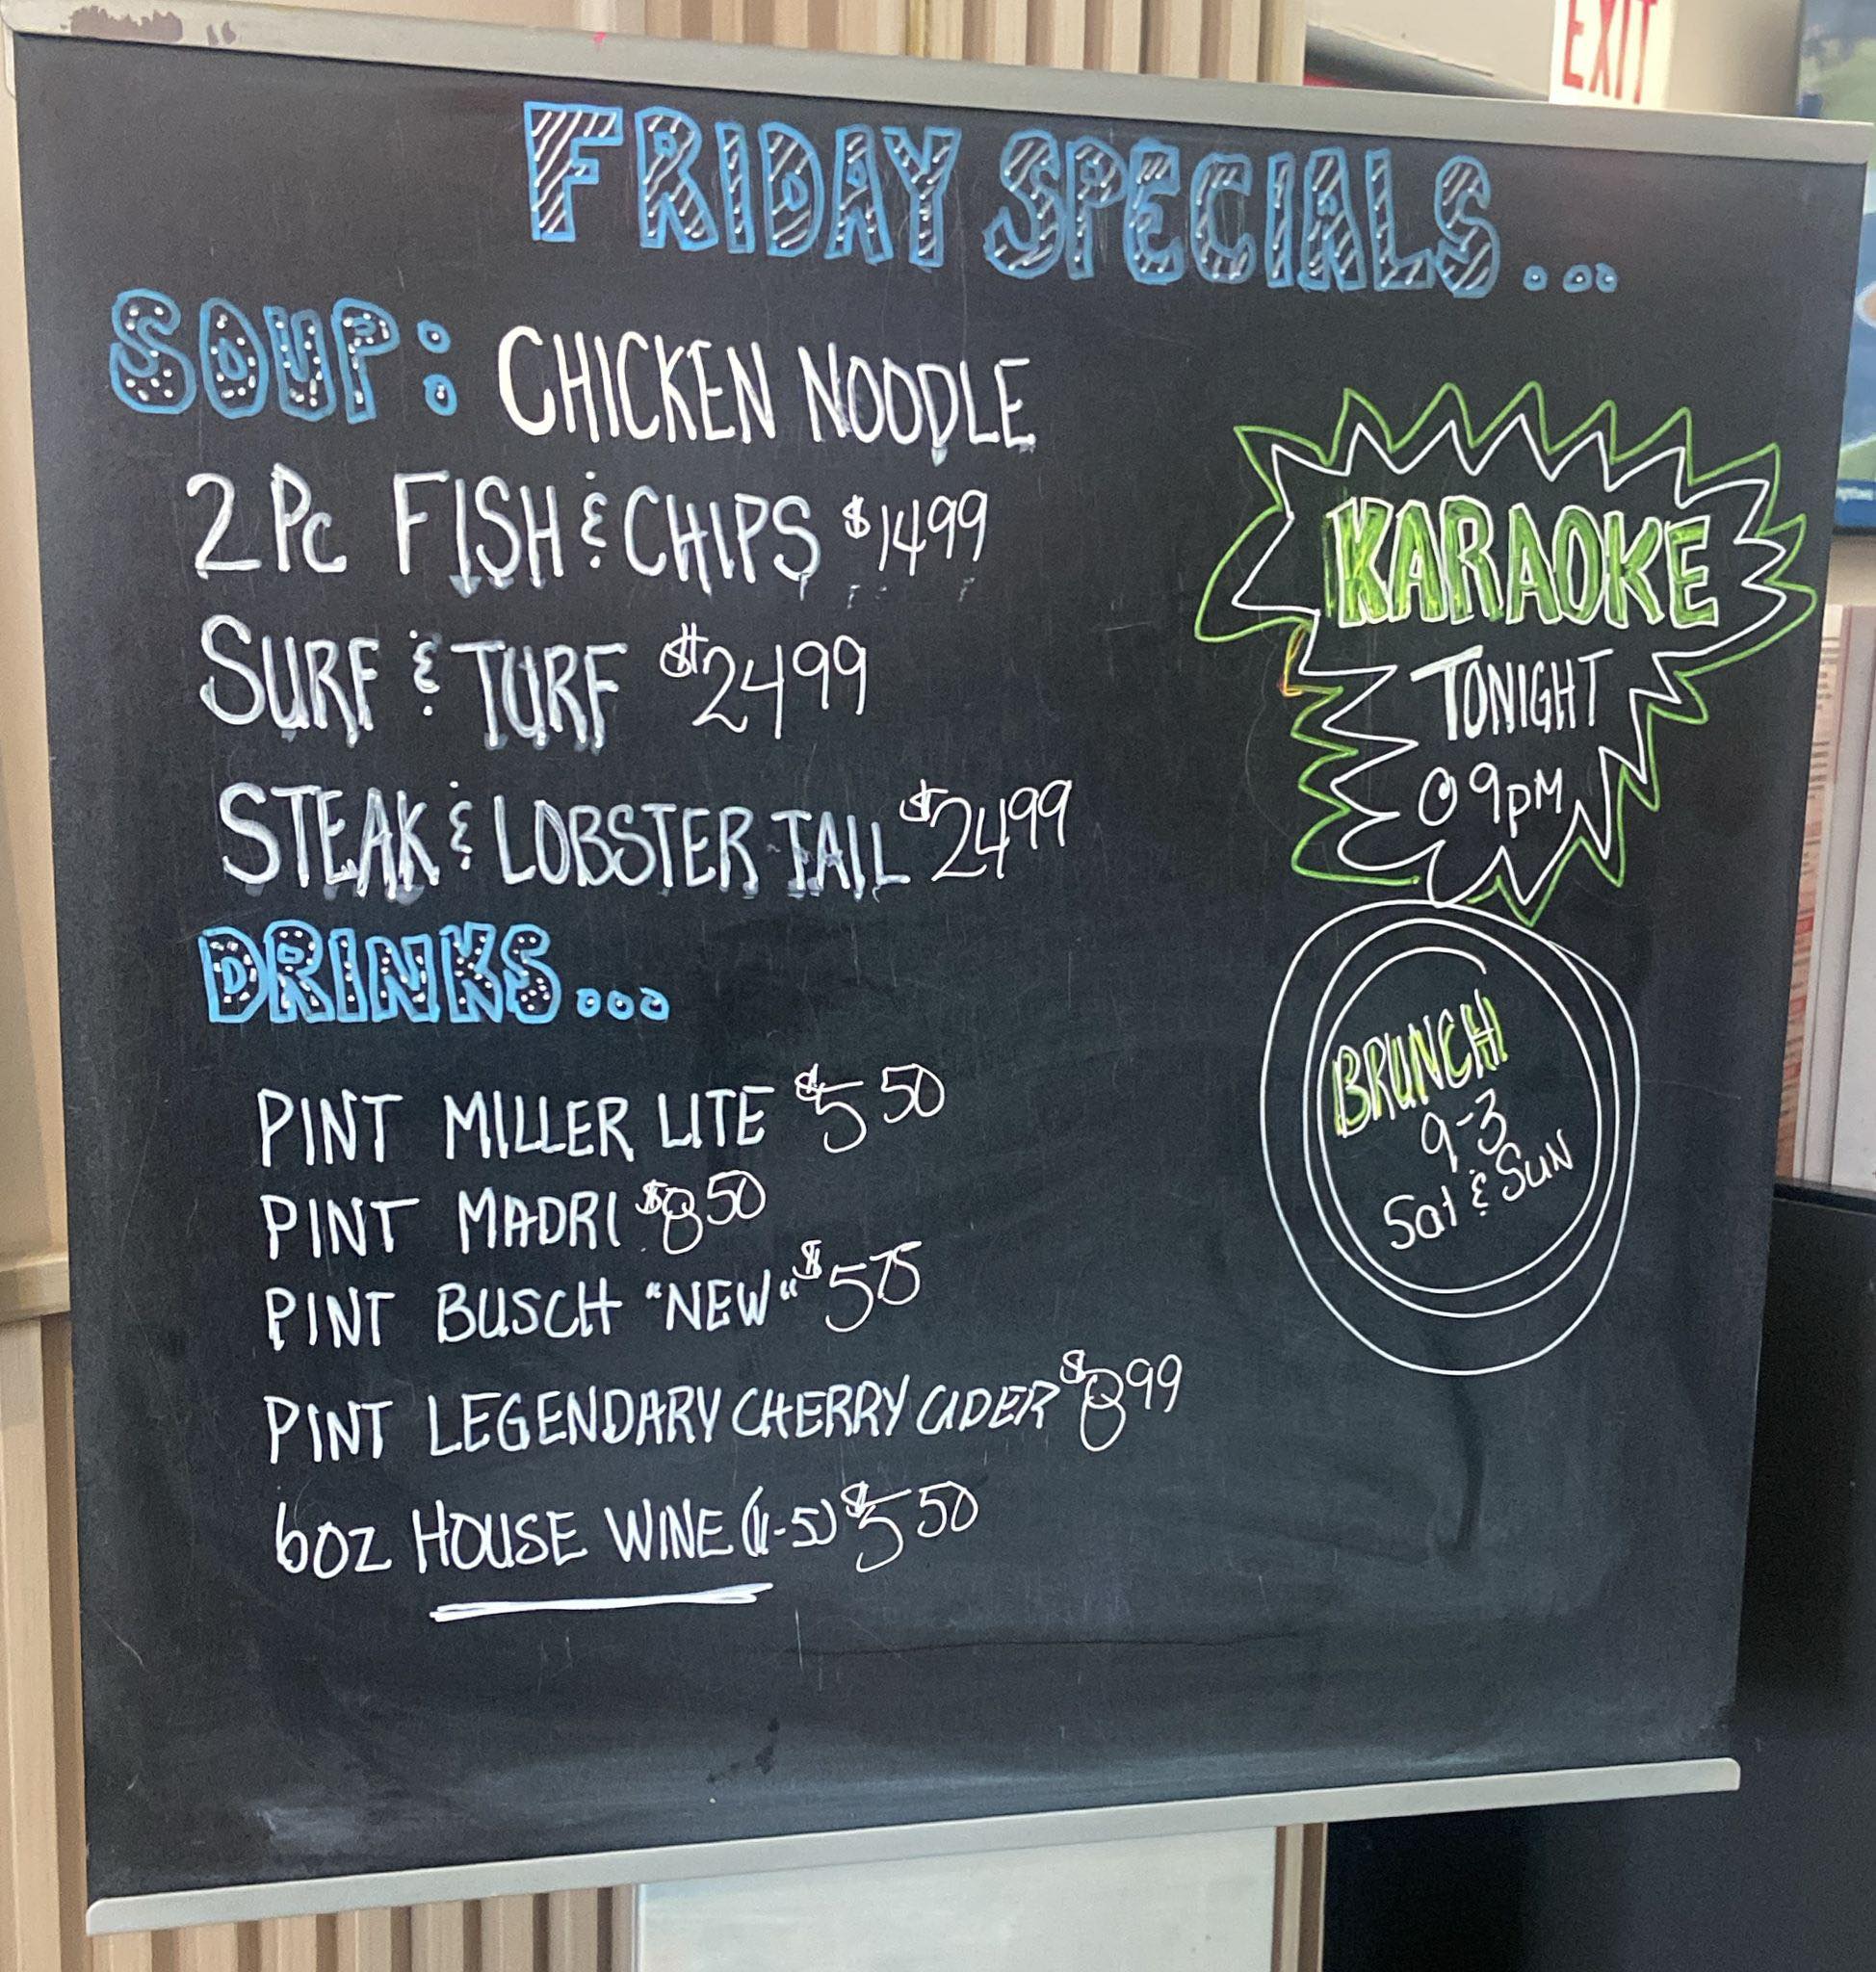 EXIT
FRIDAY SPECIALS...
SOUP: CHICKEN NOODLE
2 Pc FISH & CHIPS $1499
SURF & TURF $2499
STEAK & LOBSTER TAIL $2499
DRINKS...
PINT MILLER LITE $550
PINT MADRI $850
PINT BUSCH "NEW" $575
PINT LEGENDARY CHERRY CIDER $899
6oz HOUSE WINE (11-5) $550
KARAOKE
TONIGHT
@ 9pM
BRUNCH
9-3
Sat & SUN